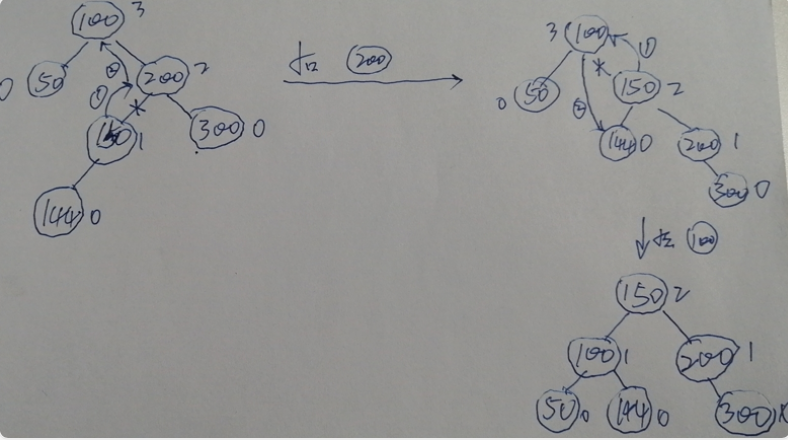 100 3
0 50
200 2
① ②
150 1
300 0
144 0
200
3 100 ①
0 50
② 150 2
144 0
200 1
300 0
100
150 2
100 1
200 1
50 0
144 0
300